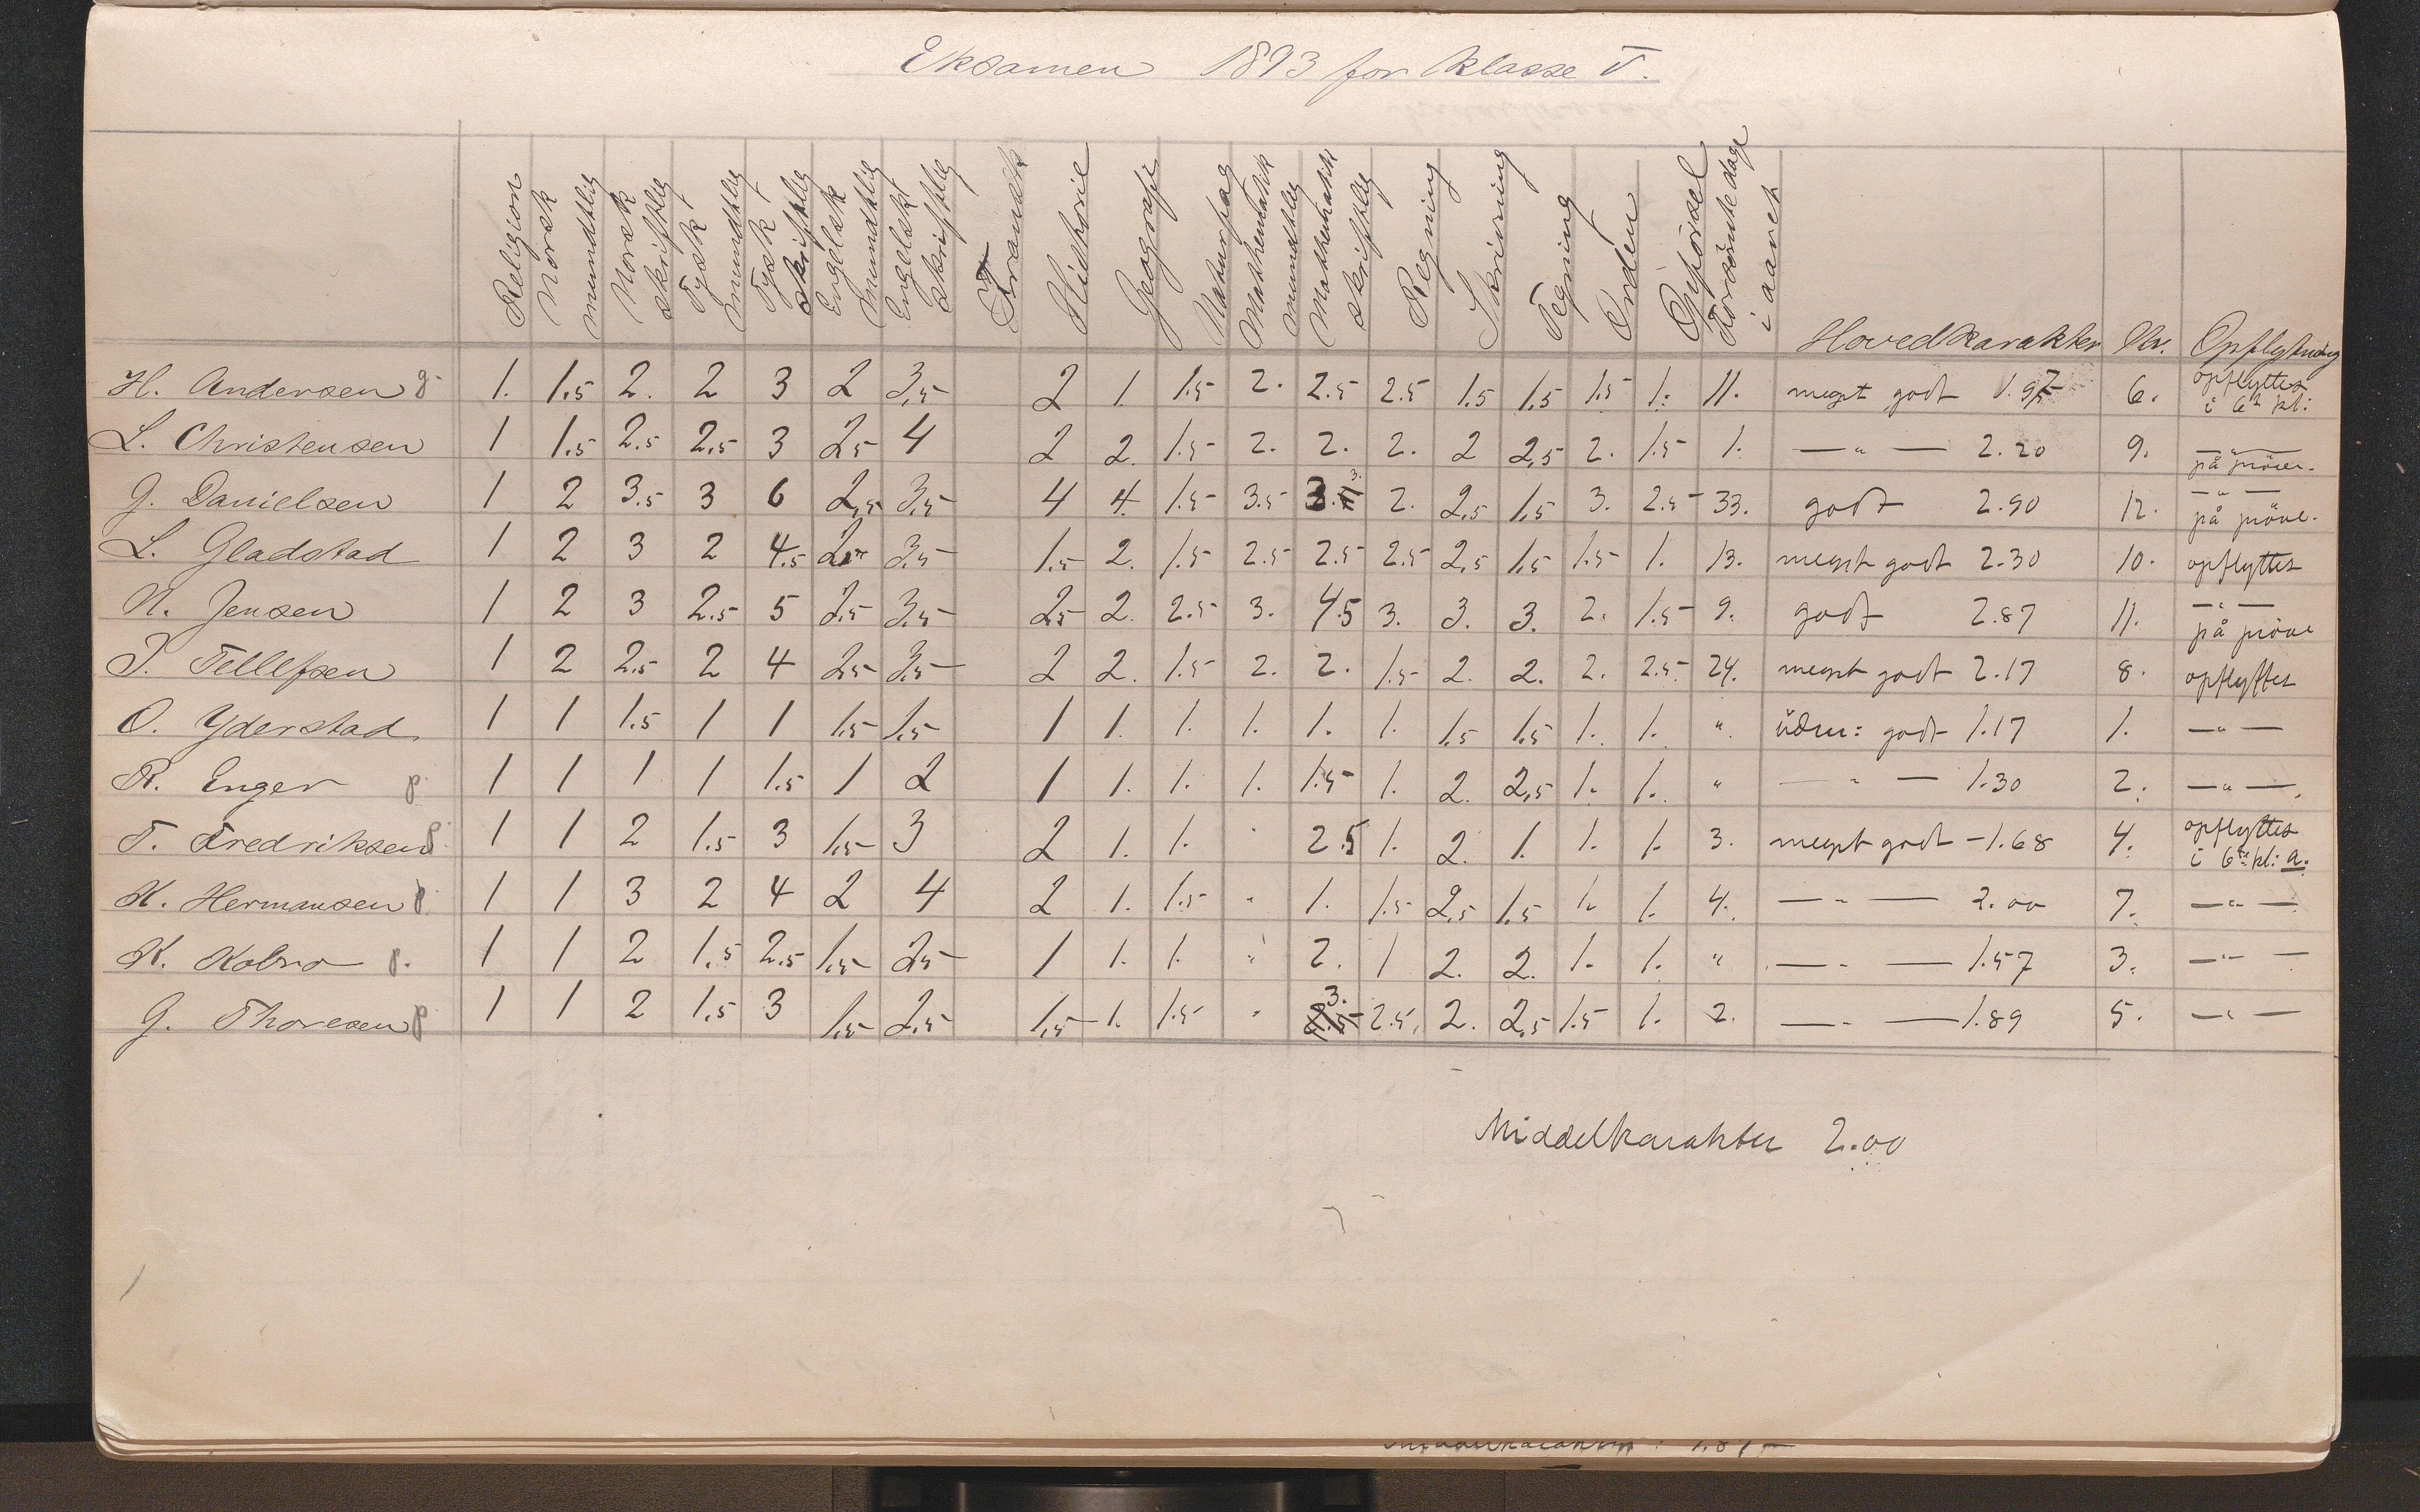 Eksamen 1893 for klasse V.
Religion Norsk mundtlig Norsk skriftlig Tysk mundtlig Tysk skriftlig Engelsk mundtlig Engelsk skriftlig Fransk Historie Geografi Naturfag Mathematik mundtlig Mathematik skriftlig Regning Skrivning Tegning Orden Opførsel Forsømte dage i aaret Hovedkarakter Nr. Opflytning
H. Andersen g. 1. 1.5 2. 2 3 2 3,5 2 1 1.5 2. 2.5 2.5 1.5 1.5 1.5 1. 11. meget godt 1.97 6. opflyttes i 6te kl:
L. Christensen 1 1.5 2.5 2.5 3 2,5 4 2 2. 1.5 2. 2. 2. 2 2,5 2. 1.5 1. — " — 2.20 9. — " — på pröve.
G. Danielsen 1 2 3.5 3 6 2,5 3,5 4 4. 1.5 3.5 3. 2. 2,5 1,5 3. 2.5 33. godt 2.90 12. — " — på pröve.
L. Gladstad 1 2 3 2 4.5 2,5 3,5 1.5 2. 1.5 2.5 2.5 2.5 2,5 1,5 1.5 1. 13. meget godt 2.30 10. opflyttes
N. Jensen 1 2 3 2.5 5 2,5 3,5 2,5 2. 2.5 3. 4.5 3. 3. 3. 2. 1.5 9. godt 2.87 11. — " — på pröve
P. Tellefsen 1 2 2.5 2 4 2,5 3,5 2 2. 1.5 2. 2. 1.5 2. 2. 2. 2.5 24. meget godt 2.17 8. opflyttes
O. Yderstad 1 1 1.5 1 1 1.5 1.5 1 1. 1. 1. 1. 1. 1.5 1.5 1. 1. " godt 1.17 1. — " —
R. Enger p 1 1 1 1 1.5 1 2 1 1. 1. 1. 1.5 1. 2. 2,5 1. 1. " — " — 1.30 2. — " —
T. Fredriksen p 1 1 2 1.5 3 1,5 3 2 1. 1. " 2.5 1. 2. 1. 1. 1. 3. meget godt - 1.68 4. opflyttes i 6te kl: a.
K. Hermansen p. 1 1 3 2 4 2 4 2 1. 1.5 " 1. 1.5 2,5 1.5 1. 1. 4. — " — 2.00 7. — " —
K. Kolsrø p. 1 1 2 1.5 2.5 1,5 2,5 1 1. 1. " 2. 1 2. 2. 1. 1. " — " — 1.57 3. — " —
G. Thoresen p 1 1 2 1.5 3 1.5 2.5 1,5 1. 1.5 " 3. 2.5. 2. 2,5 1.5 1. 2. — " — 1.89 5. — " —
Middelkarakter 2.00